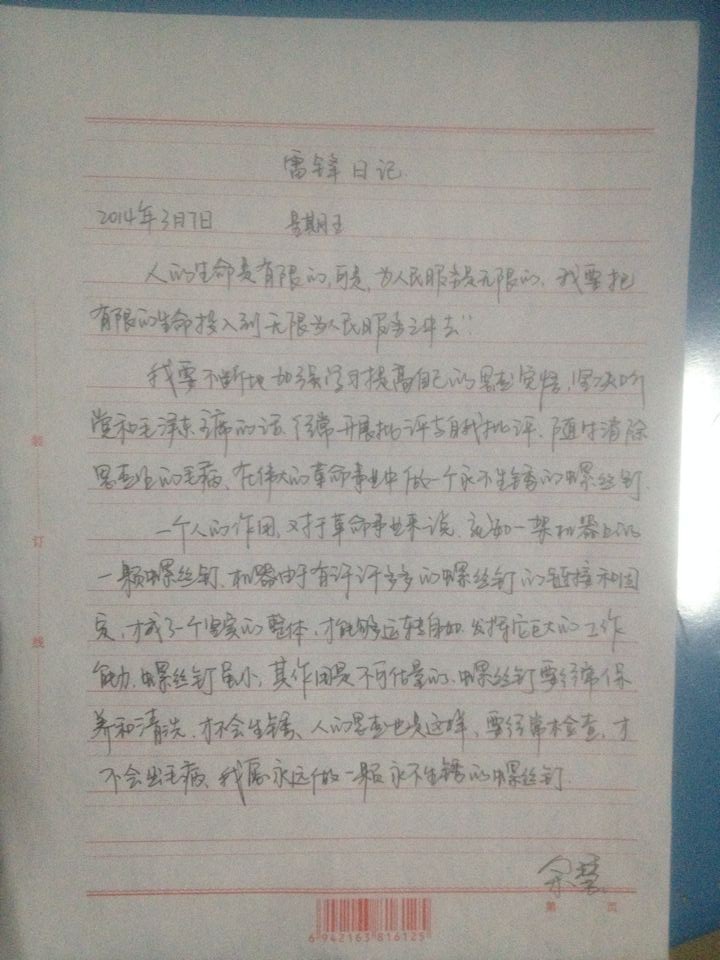 雷锋日记
2014年3月7日 星期五
人的生命是有限的,可是,为人民服务是无限的,我要把
有限的生命投入到无限为人民服务之中去"
我要不断地加强学习提高自己的思想觉悟,坚决听
党和毛泽东主席的话、经常开展批评与自我批评、随时清除
思想上的毛病、在伟大的革命事业中做一个永不生锈的螺丝钉.
一个人的作用,对于革命事业来说、就如一架机器上的
一颗螺丝钉、机器由于有许许多多的螺丝钉的链接和固
定,才成了一个坚实的整体,才能够运转自如,发挥它巨大的工作
能力.螺丝钉虽小,其作用是不可估量的.螺丝钉要经常保
养和清洗,才不会生锈、人的思想也是这样、要经常检查,才
不会出毛病、我愿永远做一颗永不生锈的螺丝钉.
装
订
线
第 页
6 942163 816125